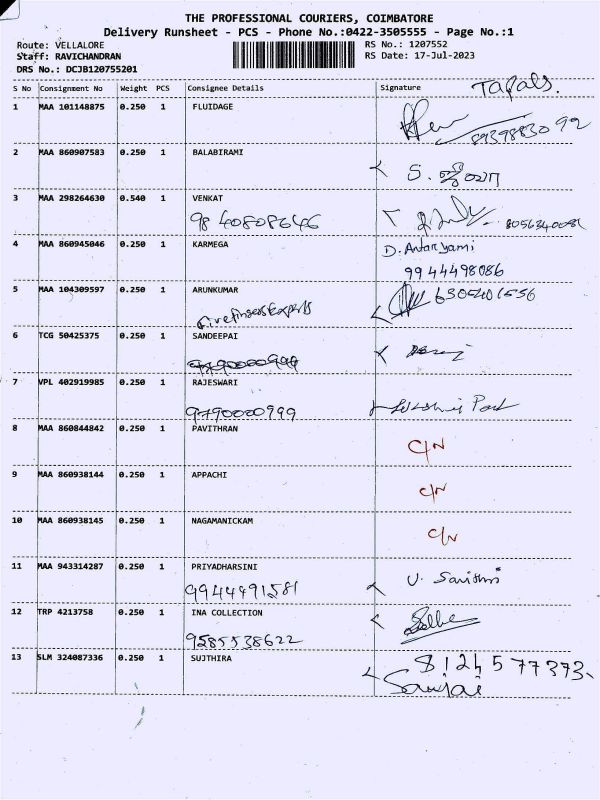 THE PROFESSIONAL COURIERS, COIMBATORE
Delivery Runsheet - PCS - Phone No.:0422-3505555 - Page No.:1
Route: VELLALORE RS No.: 1207552
Staff: RAVICHANDRAN RS Date: 17-Jul-2023
DRS No.: DCJB120755201
S No Consignment No Weight PCS Consignee Details Signature
1 MAA 101148875 0.250 1 FLUIDAGE
8939883092
2 MAA 860907583 0.250 1 BALABIRAMI
3 MAA 298264630 0.540 1 VENKAT
9840808646
4 MAA 860945046 0.250 1 KARMEGA D. Antaryami
9944498086
5 MAA 104309597 0.250 1 ARUNKUMAR
6 TCG 50425375 0.250 1 SANDEEPAI
7 VPL 402919985 0.250 1 RAJESWARI
9790000999
8 MAA 860844842 0.250 1 PAVITHRAN
C/N
9 MAA 860938144 0.250 1 APPACHI
C/N
10 MAA 860938145 0.250 1 NAGAMANICKAM
C/N
11 MAA 943314287 0.250 1 PRIYADHARSINI
9944491581
12 TRP 4213758 0.250 1 INA COLLECTION
9585538622
13 SLM 324087336 0.250 1 SUJTHIRA 8124577373
Sanjai